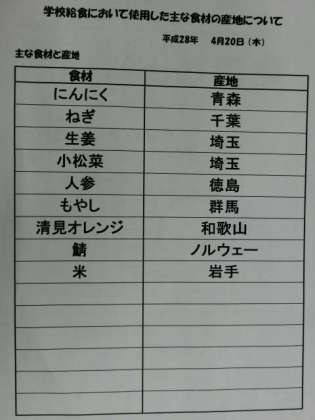 学校給食において使用した主な食材の産地について
平成28年 4月20日（水）
主な食材と産地
食材 産地
にんにく 青森
ねぎ 千葉
生姜 埼玉
小松菜 埼玉
人参 徳島
もやし 群馬
清見オレンジ 和歌山
鯖 ノルウェー
米 岩手